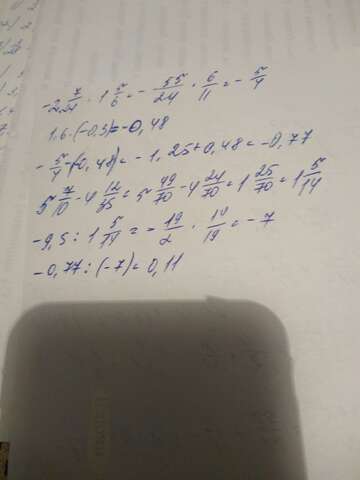 -2 7/24 : 1 5/6 = - 55/24 · 6/11 = - 5/4
1,6 · (-0,3) = -0,48
- 5/4 - (-0,48) = -1,25 + 0,48 = -0,77
5 7/10 - 4 12/35 = 5 49/70 - 4 24/70 = 1 25/70 = 1 5/14
-9,5 : 1 5/14 = - 19/2 · 14/19 = -7
-0,77 : (-7) = 0,11